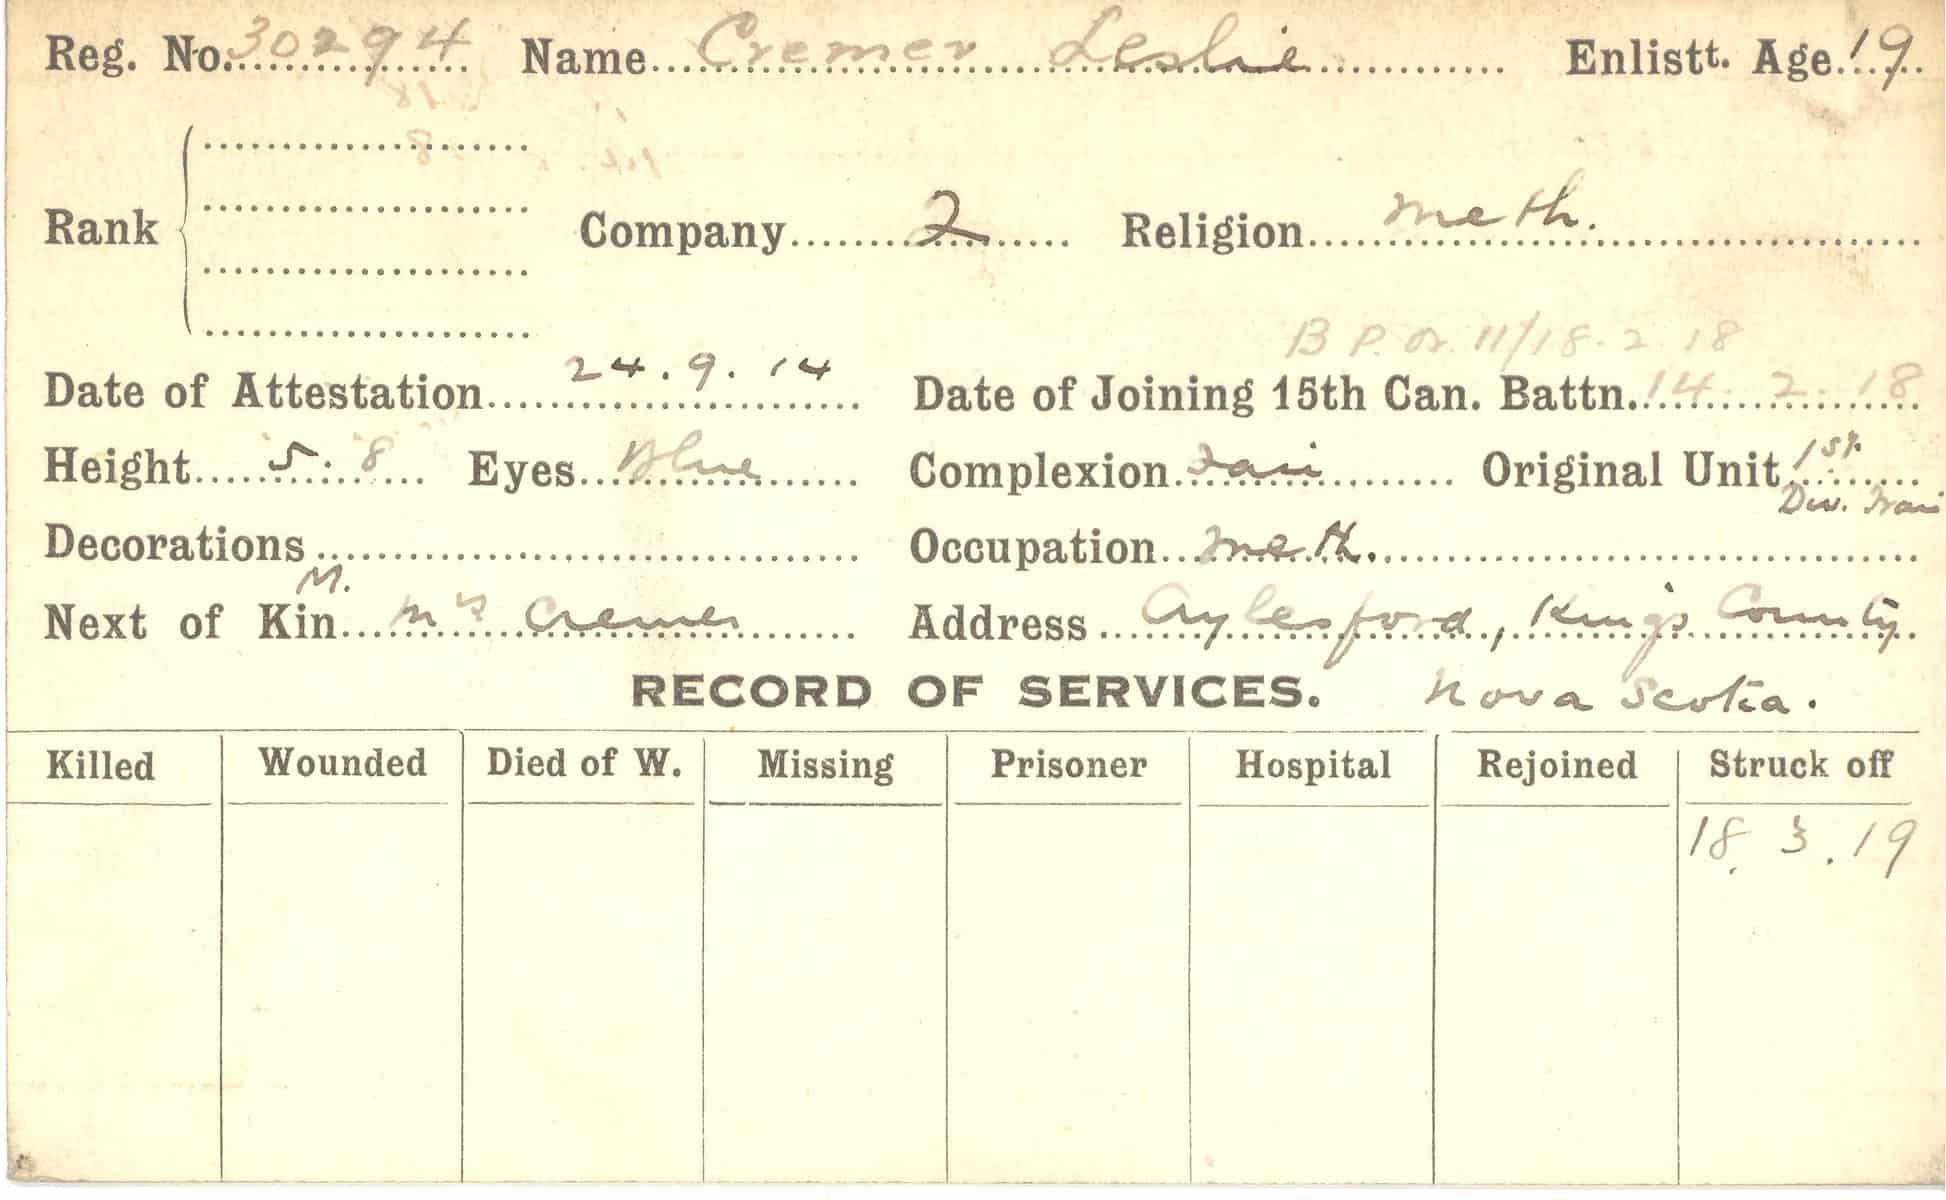 Reg. No. 30294 Name Cremer Leslie Enlistt. Age 19
Rank Company 2 Religion Meth.
B P. Or. 11/18.2.18
Date of Attestation 24.9.14 Date of Joining 15th Can. Battn. 14.2.18
Height 5' 8" Eyes Blue Complexion Fair Original Unit 1st.
Div. Train
Decorations Occupation Meth.
M.
Next of Kin Mrs Cremer Address Aylesford, Kings County
RECORD OF SERVICES. Nova Scotia.
Killed Wounded Died of W. Missing Prisoner Hospital Rejoined Struck off
18.3.19